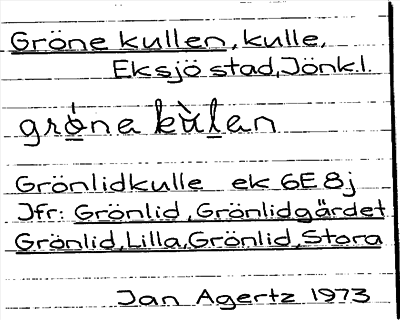 Gröne kullen, kulle,
Eksjö stad, Jönk.l.
grö̀na kùlan
Grönlidkulle ek 6E 8j
Jfr: Grönlid, Grönlidgärdet
Grönlid, Lilla, Grönlid, Stora
Jan Agertz 1973